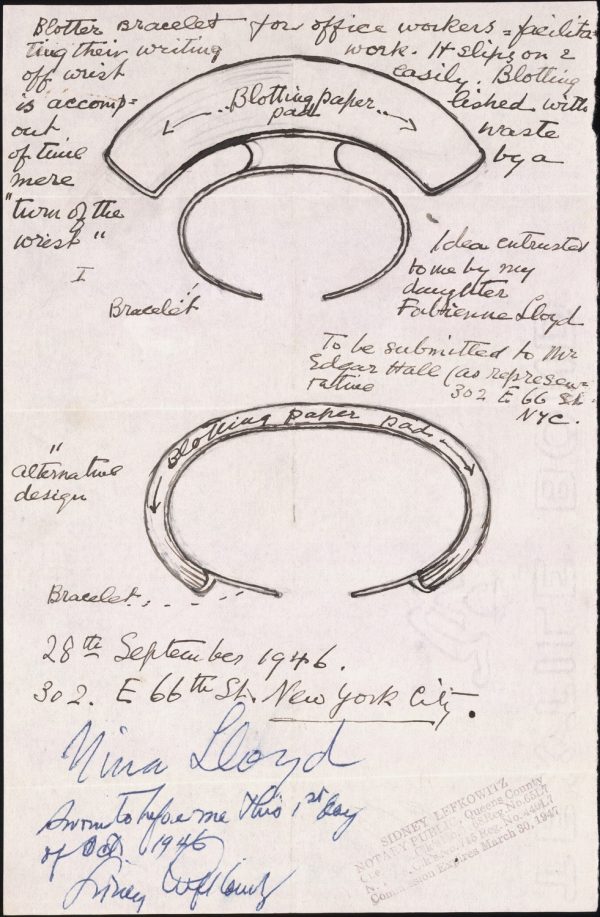 Blotter Bracelet for office workers = facilita=
ting their writing work. It slips on &
off wrist easily. Blotting
is accomp= lished with
out waste
of time by a
mere
"turn of the
wrist"
.. Blotting paper ..
pad
I
Bracelet
Idea entrusted
to me by my
daughter
Fabienne Lloyd
To be submitted to Mr
Edgar Hall (as represen=
tative 302 E 66 St.
NYC.
Blotting paper pad
"
alternative
design
Bracelet
28th September 1946.
302. E 66th St. New York City.
Mina Lloyd
Sworn to before me this 1st day
of Oct 1946
Sidney Lefkowitz
SIDNEY LEFKOWITZ
NOTARY PUBLIC, Queens County
Reg. No.
N. Y. Co. Clk's No. 716 Reg. No.
Commission Expires March 30, 1947